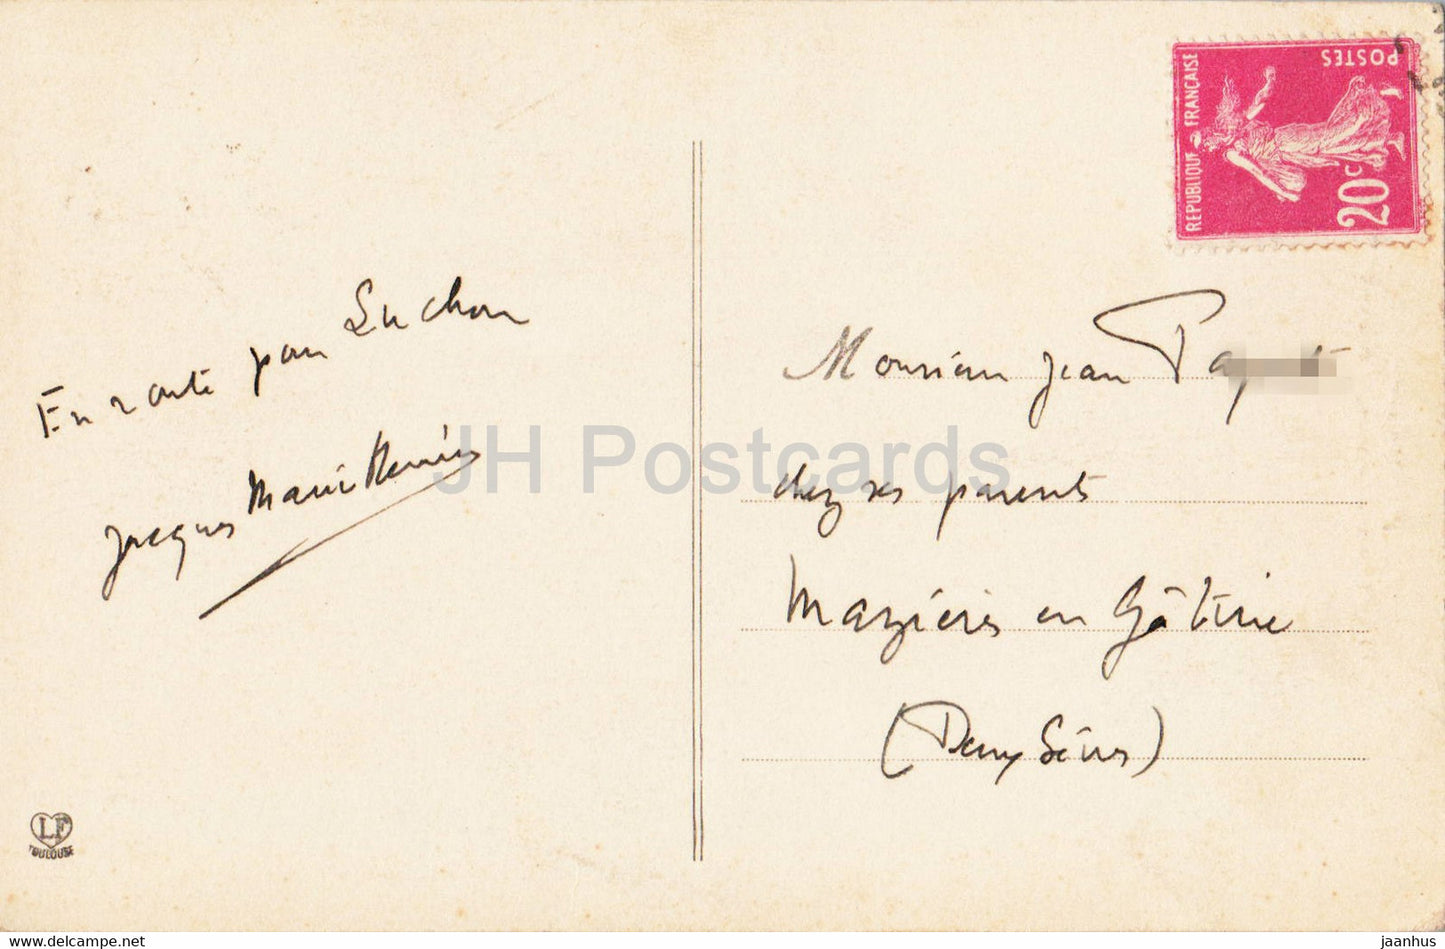 En route pour Luchon
Jacques Marie
REPUBLIQUE FRANÇAISE
POSTES
20c
Monsieur Jean
chez ses parents
Mazières en Gâtine
(Deux Sèvres)
LF
TOULOUSE
JH Postcards
www.delcampe.net
jaanhus